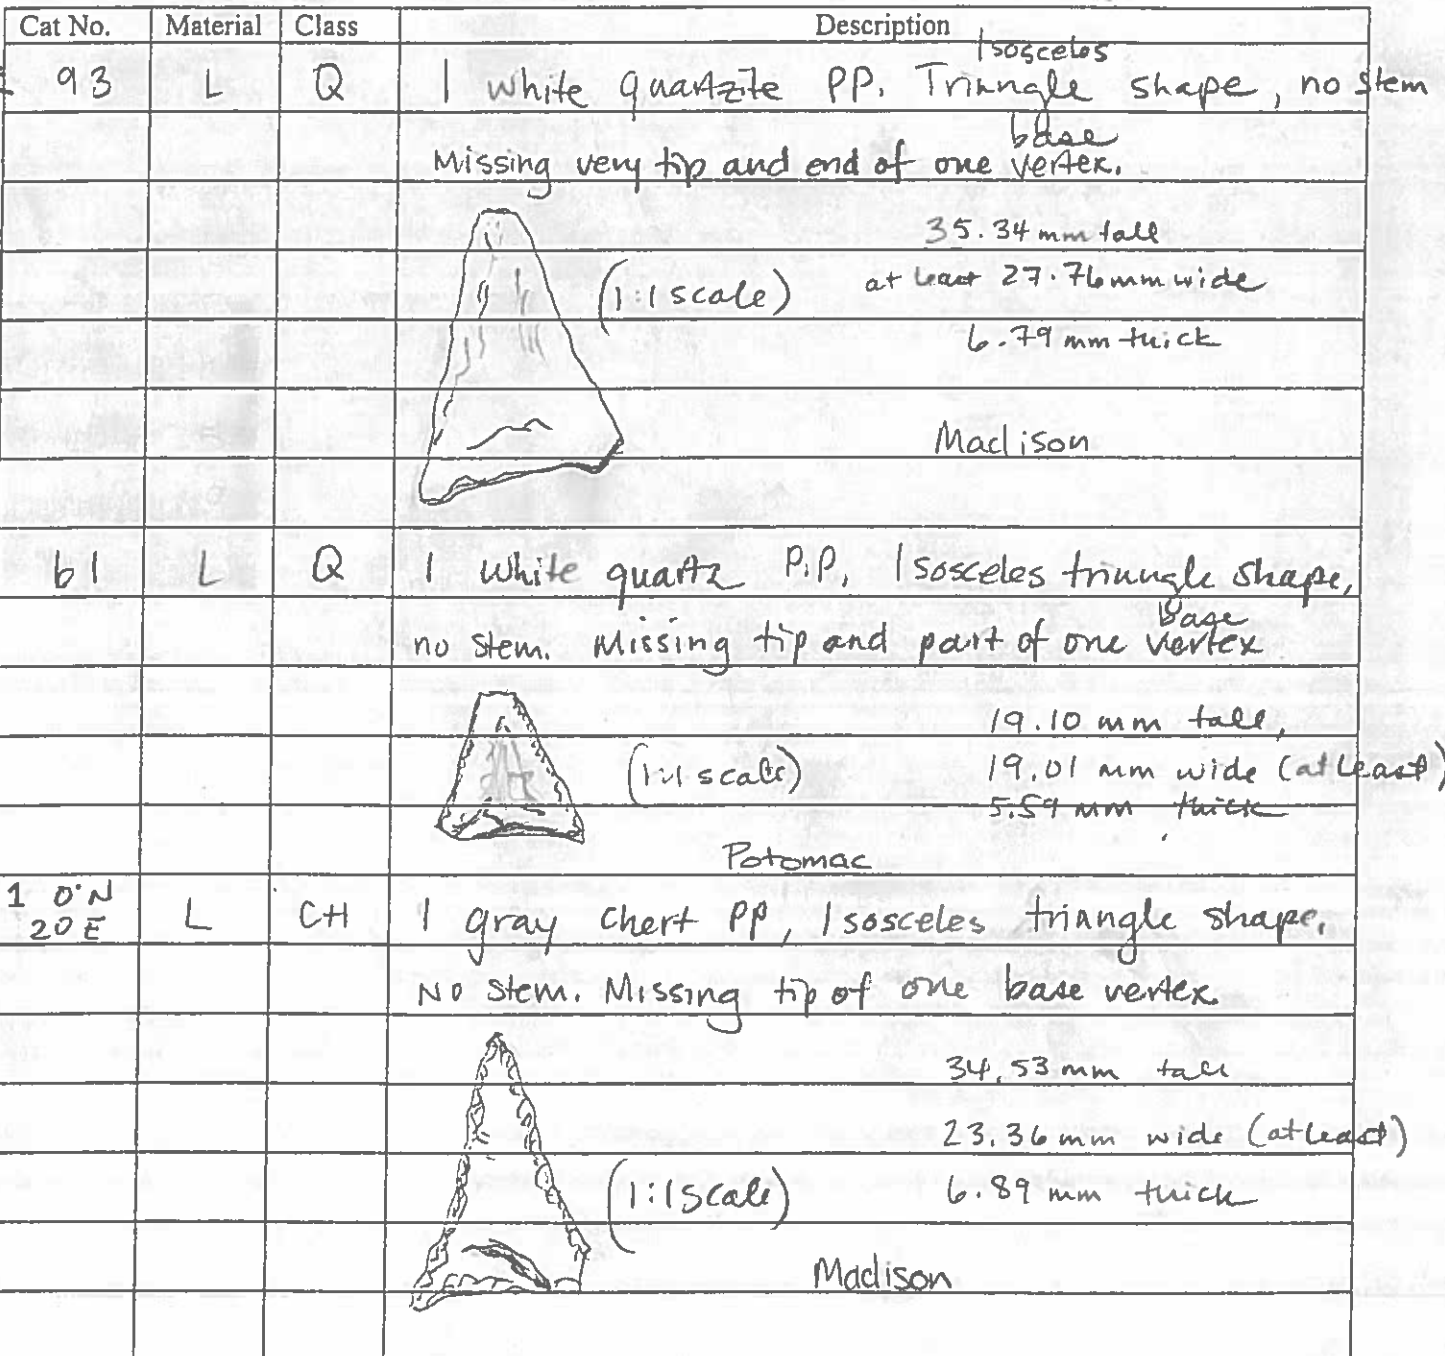 Cat No. Material Class Description
Isosceles
93 L Q 1 White quartzite PP. Triangle shape, no stem
base
Missing very tip and end of one vertex.
35.34 mm tall
(1:1 scale) at least 27.76 mm wide
6.79 mm thick
Madison
61 L Q 1 White quartz P.P. Isosceles triangle shape,
base
no stem. Missing tip and part of one vertex
19.10 mm tall,
(1:1 scale) 19.01 mm wide (at least)
5.59 mm thick
Potomac
1 0°N
20 E L CH 1 gray chert PP, Isosceles triangle shape.
No stem. Missing tip of one base vertex.
34.53 mm tall
23.36 mm wide (at least)
(1:1 scale) 6.89 mm thick
Madison